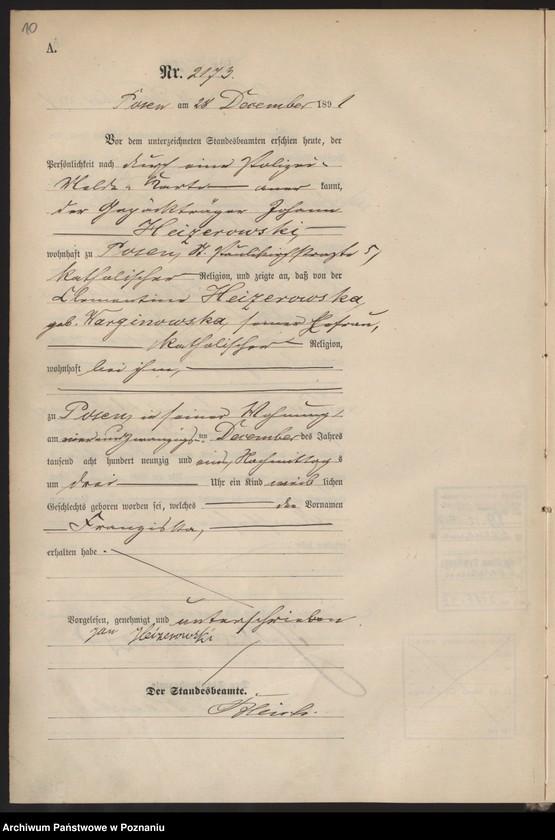 10
A.
Nr. 2173.
Posen am 28 December 1891
Vor dem unterzeichneten Standesbeamten erschien heute, der
Persönlichkeit nach durch eine Polizei-
Melde-Karte aner kannt,
der Gepäckträger Johann
Heizerowski,
wohnhaft zu Posen, St. Paulikirchstraße 5,
katholischer Religion, und zeigte an, daß von der
Clementine Heizerowska
geb. Warginowska, seiner Ehefrau,
katholischer Religion,
wohnhaft bei ihm,
zu Posen in seiner Wohnung
am vierundzwanzigsten December des Jahres
tausend acht hundert neunzig und eins, Nachmittags
um drei Uhr ein Kind weib lichen
Geschlechts geboren worden sei, welches den Vornamen
Franziska,
erhalten habe.
Vorgelesen, genehmigt und unterschrieben
Jan Heizerowski
Der Standesbeamte.
Archiwum Państwowe w Poznaniu